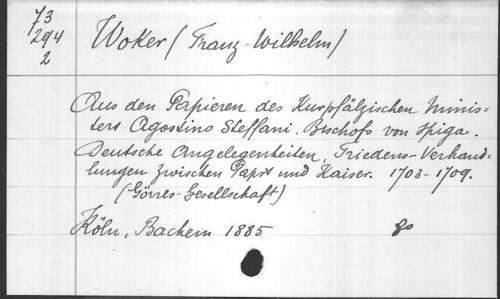 73
294
2
Woker (Franz-Wilhelm)
Aus den Papieren des Kurpfälzischen Minis=
ters Agostino Steffani, Bischofs von Spiga.
Deutsche Angelegenheiten, Friedens-Verhand=
lungen zwischen Papst und Kaiser. 1703-1709.
(Görres-Gesellschaft)
Köln, Bachem 1885 8o